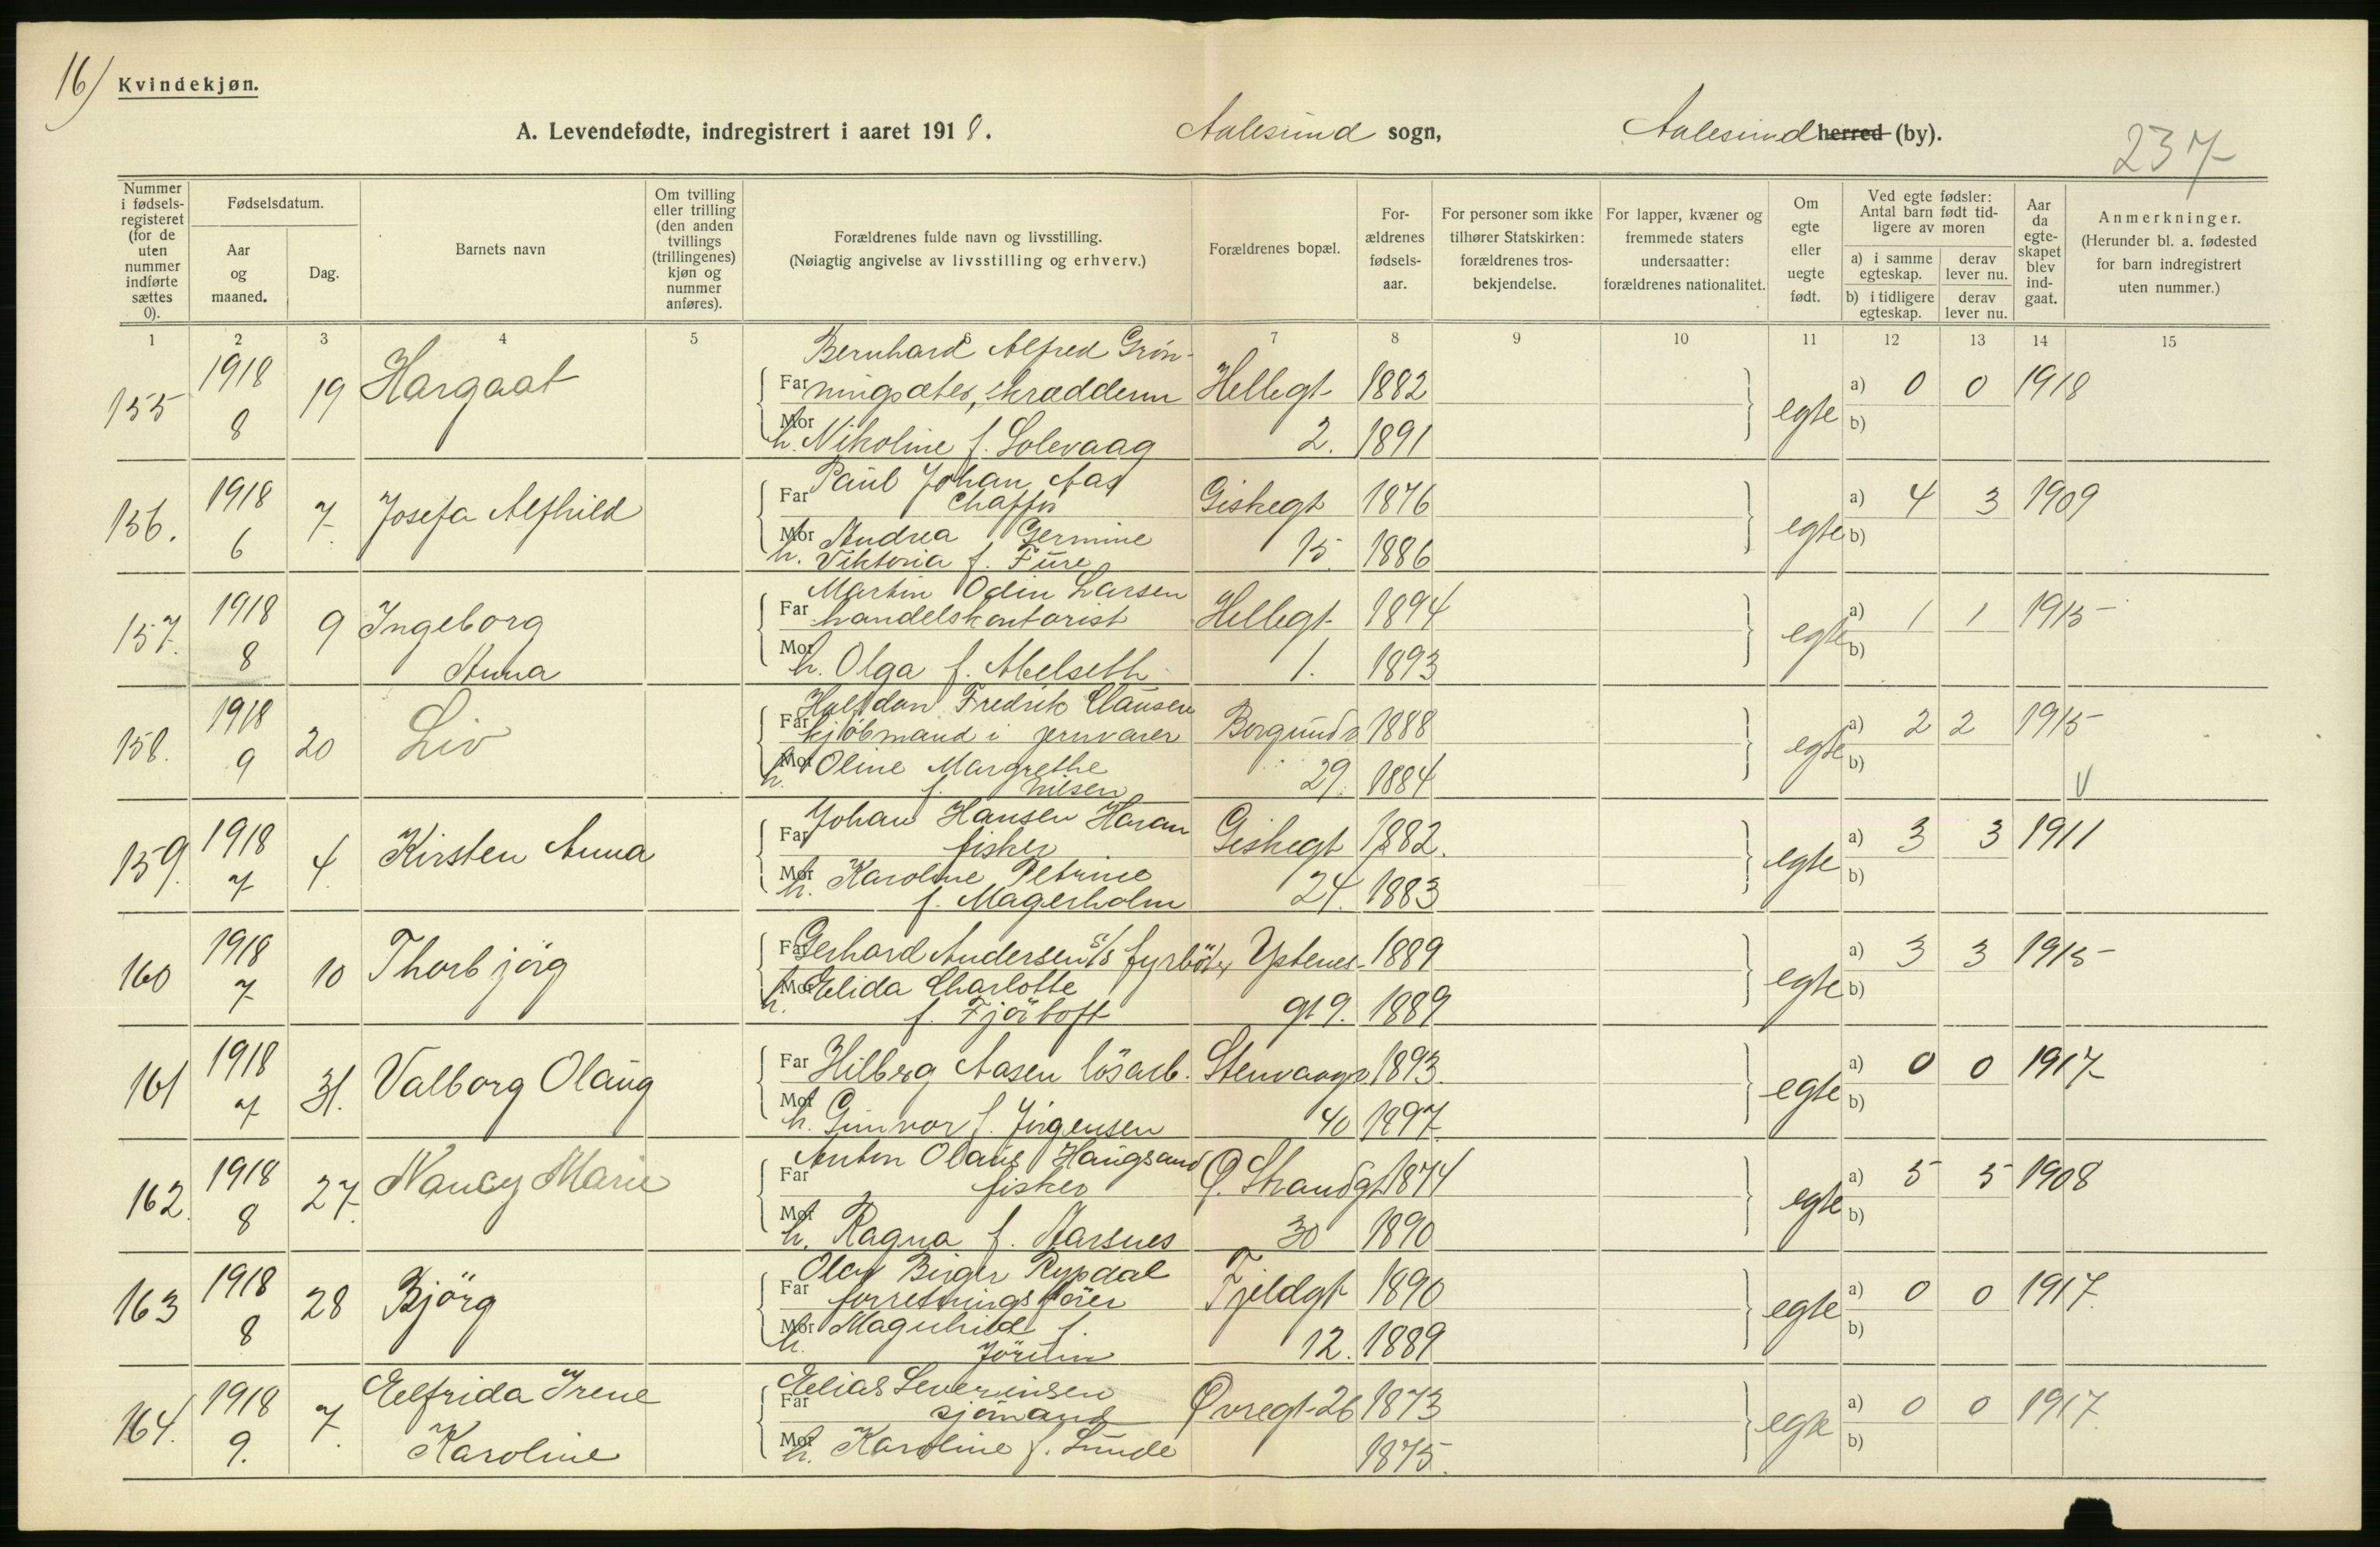 16)
Kvindekjøn.
A. Levendefødte, indregistrert i aaret 1918.
Aalesund sogn,
Aalesund herred (by).
237
Nummer i fødsels-registeret (for de uten nummer indførte sættes 0).
Fødselsdatum.
Aar og maaned.
Dag.
Barnets navn
Om tvilling eller trilling (den anden tvillings (trillingenes) kjøn og nummer anføres).
Forældrenes fulde navn og livsstilling.
(Nøiagtig angivelse av livsstilling og erhverv.)
Forældrenes bopæl.
For-ældrenes fødsels-aar.
For personer som ikke tilhører Statskirken: forældrenes tros-bekjendelse.
For lapper, kvæner og fremmede staters undersaatter: forældrenes nationalitet.
Om egte eller uegte født.
Ved egte fødsler: Antal barn født tid-ligere av moren
a) i samme egteskap.
derav lever nu.
b) i tidligere egteskap.
derav lever nu.
Aar da egte-skapet blev ind-gaat.
Anmerkninger.
(Herunder bl. a. fødested for barn indregistrert uten nummer.)
1 2 3 4 5 6 7 8 9 10 11 12 13 14 15
Bernhard Alfred Grøn-
155 1918 19 Hargaat Far ningsæter, skrædderm Hellegt 1882 egte a) 0 0 1918
8 Mor h. Nikoline f. Solevaag 2. 1891 b)
Paul Johan Aas
156. 1918 7. Josefa Alfhild Far Chaffør Giskegt 1876 egte a) 4 3 1909
6 Mor Andrea Germine 15. 1886 b)
h. Viktoria f. Fure
Martin Odin Larsen
157. 1918 9 Ingeborg Far handelskontorist Hellegt 1894 egte a) 1 1 1915
8 Anna Mor h. Olga f. Abelseth 1. 1893 b)
Halfdan Fredrik Clausen
158. 1918 20 Liv Far kjøbmand i jernvarer Borgundv 1888 egte a) 2 2 1915
9 Mor h. Oline Margrethe 29. 1884 b) V
f. Nilsen
Johan Hansen Haram
159. 1918 4. Kirsten Anna Far fisker Giskegt 1882. egte a) 3 3 1911
7 Mor h. Karoline Petrine 24. 1883 b)
f. Magerholm
160 1918 10 Thorbjörg Far Gerhard Andersen s/s fyrböter Ystenes- 1889 egte a) 3 3 1915
7 Mor h. Elida Charlotte gt 9. 1889 b)
f. Fjörtoft
161 1918 31. Valborg Olaug Far Hilberg Aasen lösarb. Stenvaagv. 1893. egte a) 0 0 1917
7 Mor h. Gunvor f. Jörgensen 40 1897 b)
Anton Olaus Haugsand
162. 1918 27. Nancy Marie Far fisker Ø. Strandgt. 1874 egte a) 5 5 1908
8 Mor h. Ragna f. Aarsnes 30 1890 b)
Olav Birger Rypdal
163 1918 28 Björg Far forretningsförer Fjeldgt 1890 egte a) 0 0 1917.
8 Mor h. Magnhild f. 12. 1889 b)
Jörum
Elias Severinsen
164. 1918 7. Elfrida Irene Far sjömand Øvregt. 26 1873 egte a) 0 0 1917.
9. Karoline Mor h. Karoline f. Lunde 1875. b)